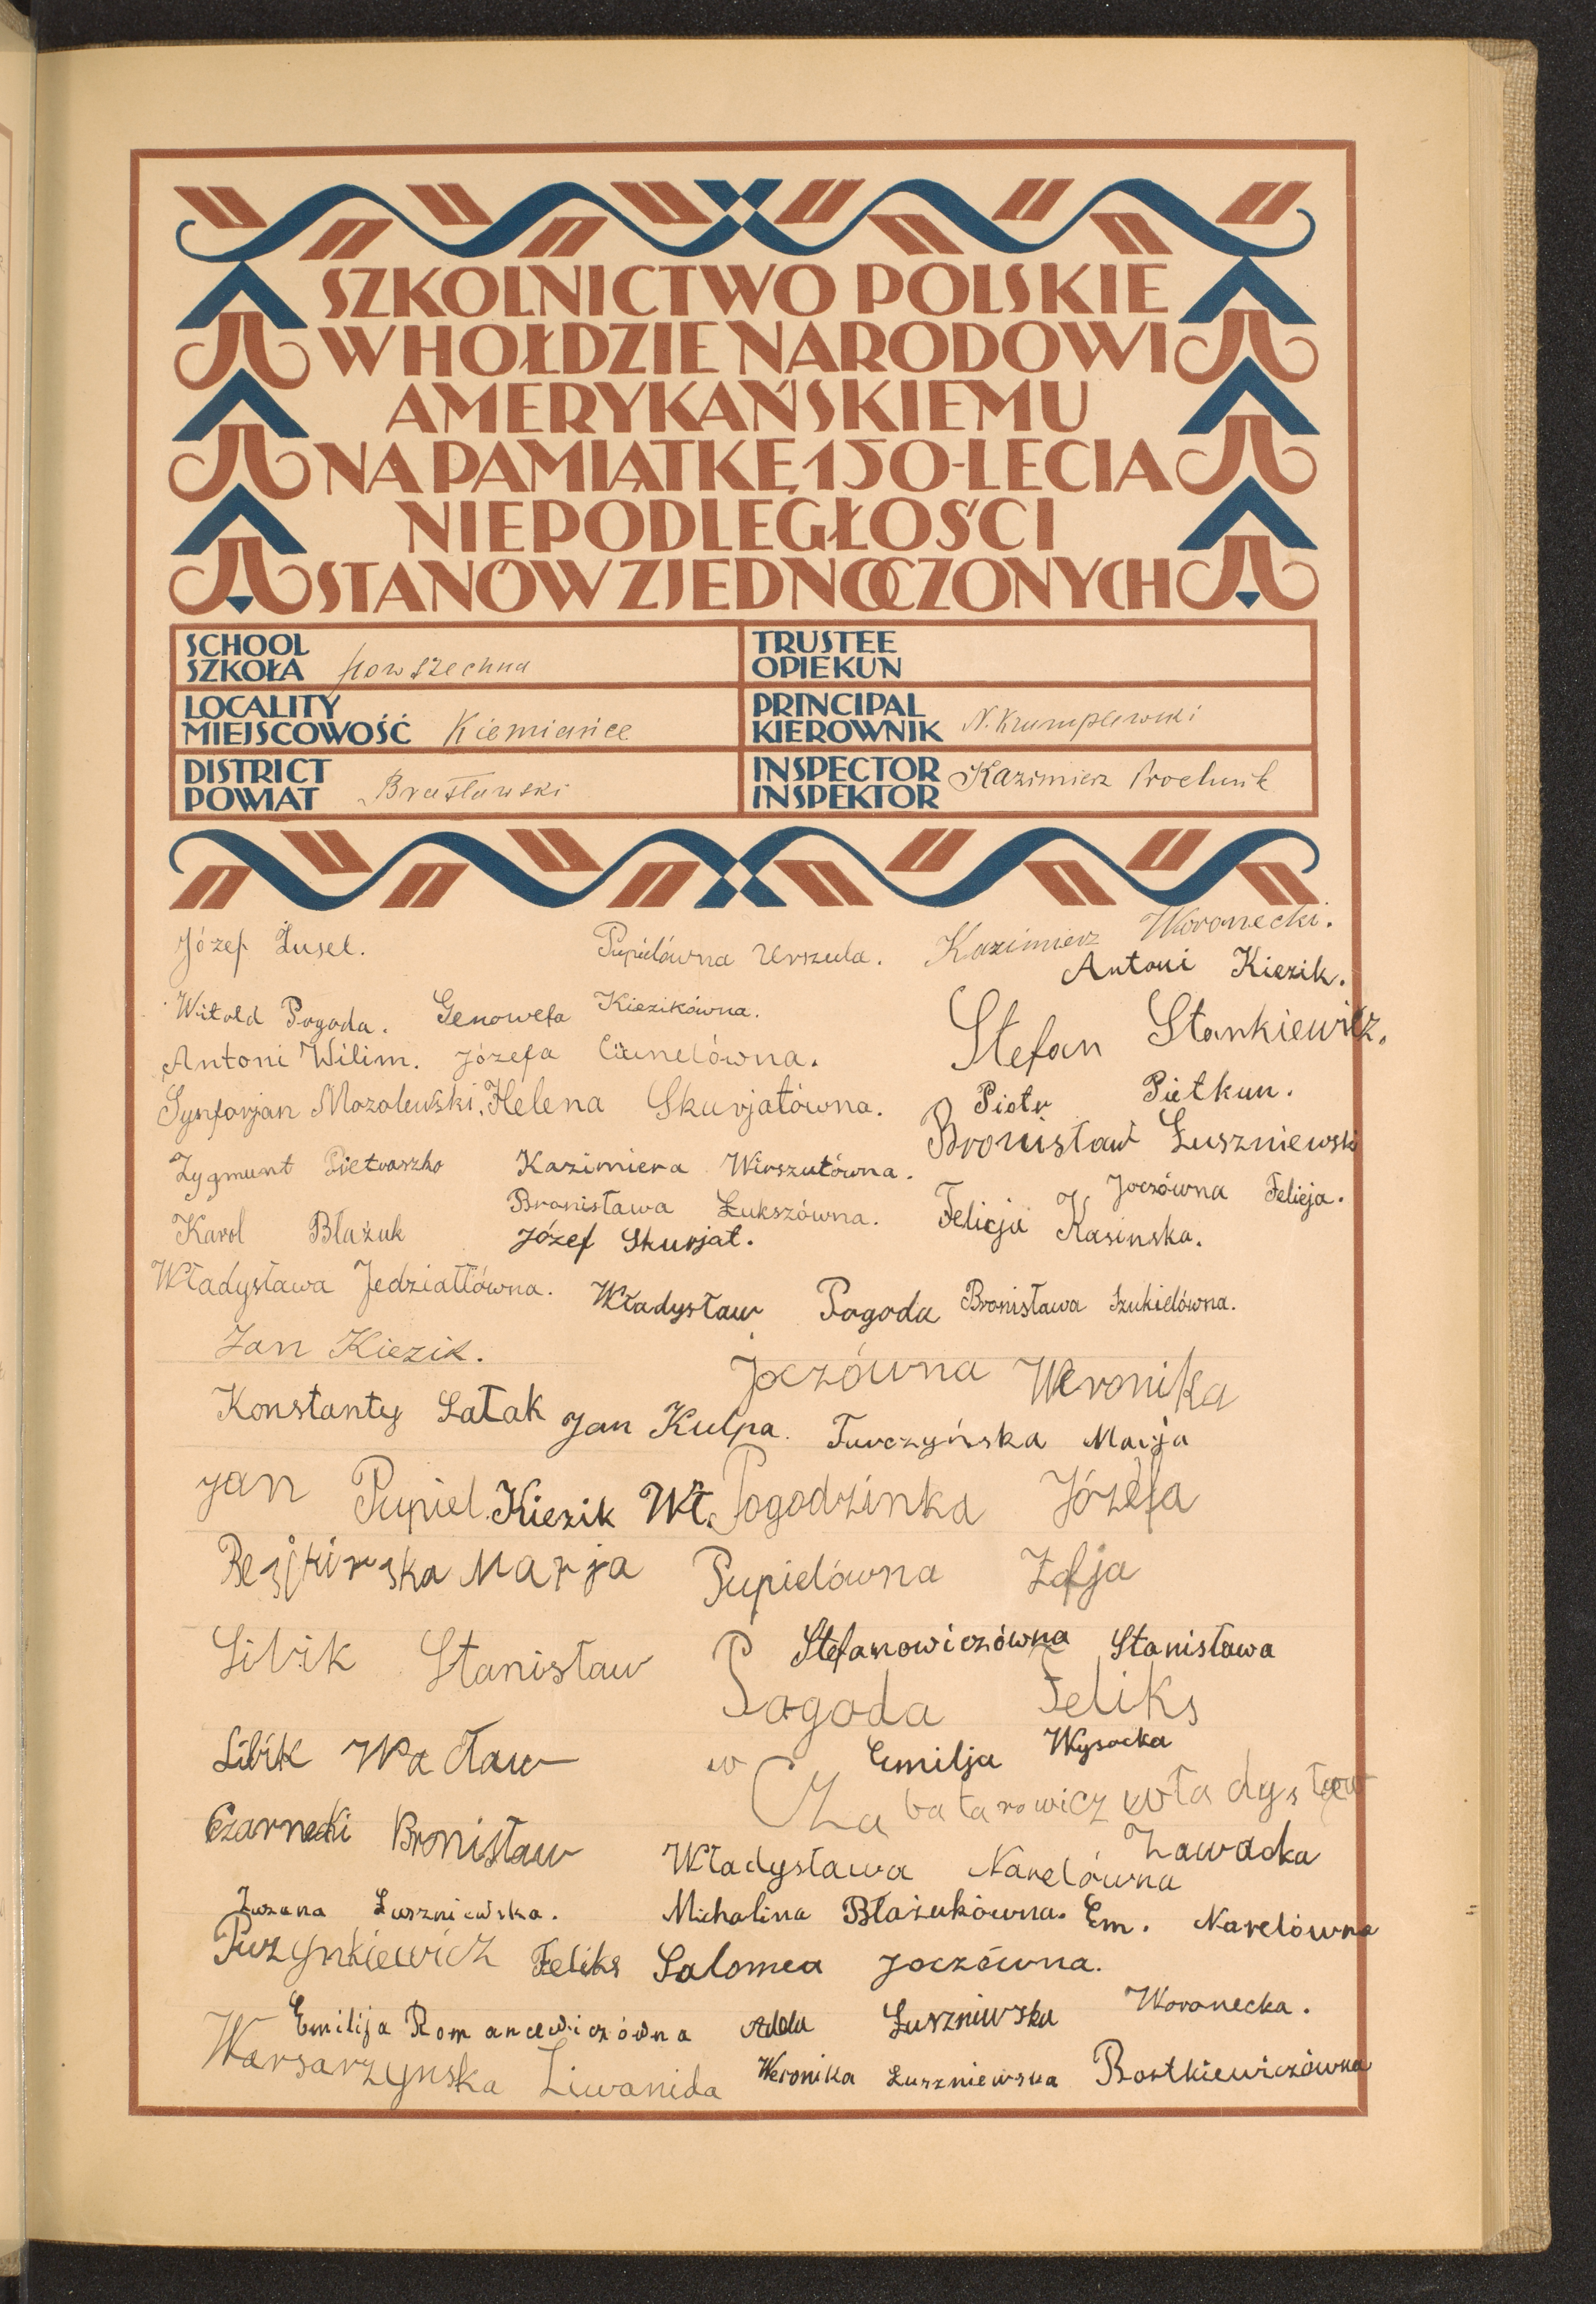 SZKOLNICTWO POLSKIE
W HOŁDZIE NARODOWI
AMERYKAŃSKIEMU
NA PAMIĄTKĘ 150-LECIA
NIEPODLEGŁOŚCI
STANÓW ZJEDNOCZONYCH
SCHOOL
SZKOŁA Powszechna
TRUSTEE
OPIEKUN
LOCALITY
MIEJSCOWOŚĆ Kiemiańce
PRINCIPAL
KIEROWNIK N. Krumplewski
DISTRICT
POWIAT Brasławski
INSPECTOR
INSPEKTOR Kazimierz Prochnik
Józef Żusel. Pupielówna Urszula. Kazimierz Woronecki.
Antoni Kiezik.
Witold Pogoda. Genowefa Kiezikówna.
Stefan Stankiewicz.
Antoni Wilim. Józefa
Synforjan Mozolewski. Helena Skurjatówna. Piotr Pietkun.
Bronisław Łuszniewski
Zygmunt Pietraszko Kazimiera Wirszutówna.
Joczówna Felicja.
Bronisława Łukszówna. Felicja Kasinska.
Karol Błażuk Józef Skurjat.
Władysława Jedziattówna. Władysław Pogoda Bronisława Szukielówna.
Jan Kiezik.
Joczówna Weronika
Konstanty Łatak Jan Kulpa. Turczyńska Marja
Jan Pupiel. Kiezik Wł. Pogodzinka Józefa
Marja Pupielówna Zofja
Stefanowiczówna Stanisława
Libik Stanisław
Pogoda Feliks
Libik Wacław Emilja Wysocka
w
Władysław
Czarnecki Bronisław Zawadka
Władysława Narelówna
Zuzana Łuszniewska. Michalina Błażukówna. Em. Narelówna
Puzynkiewicz Feliks Salomea Joczówna.
Emilija Romancewiczówna Adela Łuszniewska Woronecka.
Warsarzynska Liwanida Weronika Łuszniewska Rostkiewiczówna